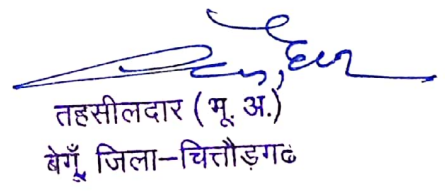 तहसीलदार (भू. अ.)
बेगूँ, जिला-चित्तौड़गढ